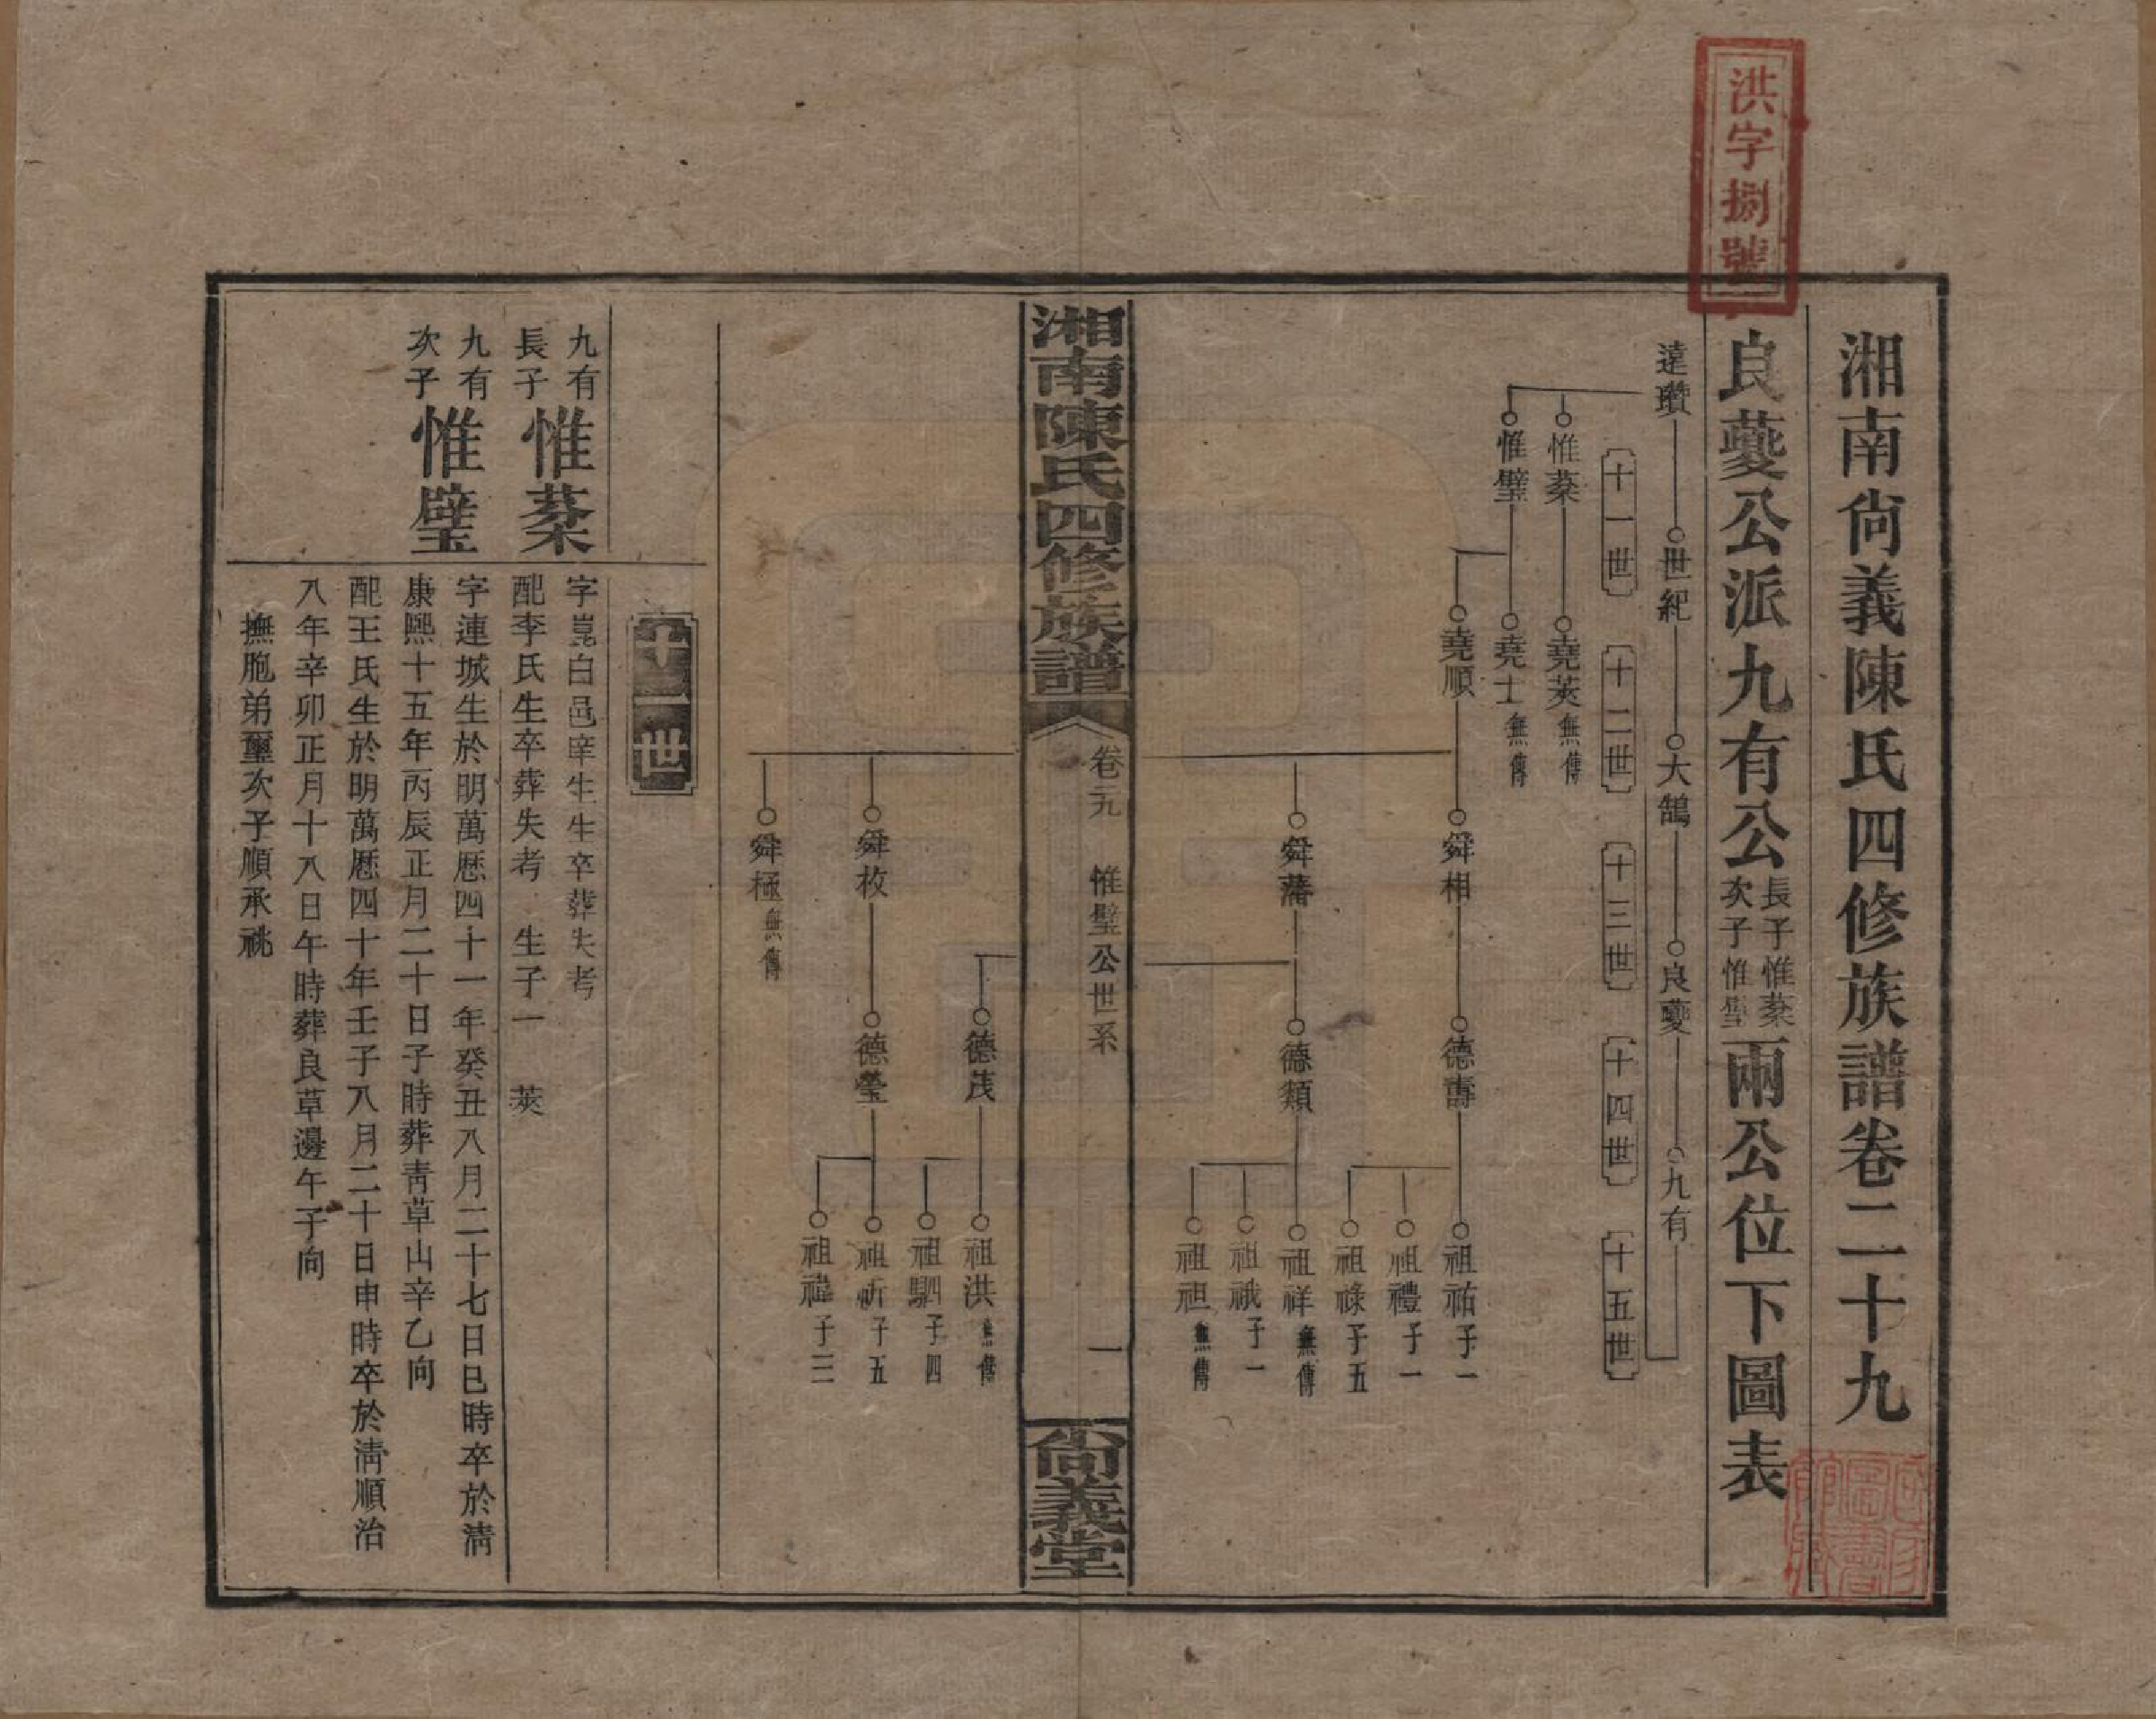 洪字捌號
湘南尙義陳氏四修族譜卷二十九
良夔公派九有公長子惟蔾次子惟璧兩公位下圖表
遠瓚 世紀 大鵠 良夔 九有
十一世 十二世 十三世 十四世 十五世
惟蔾 堯萊無傳
惟璧 堯士無傳
堯順 舜相 德壽 祖祐子一
祖禮子一
祖祿子五
舜藩 德類 祖祥無傳
祖祇子一
祖祖無傳
湘南陳氏四修族譜 卷二九 惟璧公世系 一 尙義堂
德茂 祖洪無傳
祖駟子四
舜枚 德瑩 祖祈子五
祖禕子三
舜極無傳
十一世
九有長子惟蔾
字崑白邑庠生生卒葬失考
配李氏生卒葬失考 生子一 萊
九有次子惟璧
字連城生於明萬厯四十一年癸丑八月二十七日巳時卒於淸
康熙十五年丙辰正月二十日子時葬靑草山辛乙向
配王氏生於明萬厯四十年壬子八月二十日申時卒於淸順治
八年辛卯正月十八日午時葬良草邊午子向
撫胞弟璽次子順承祧